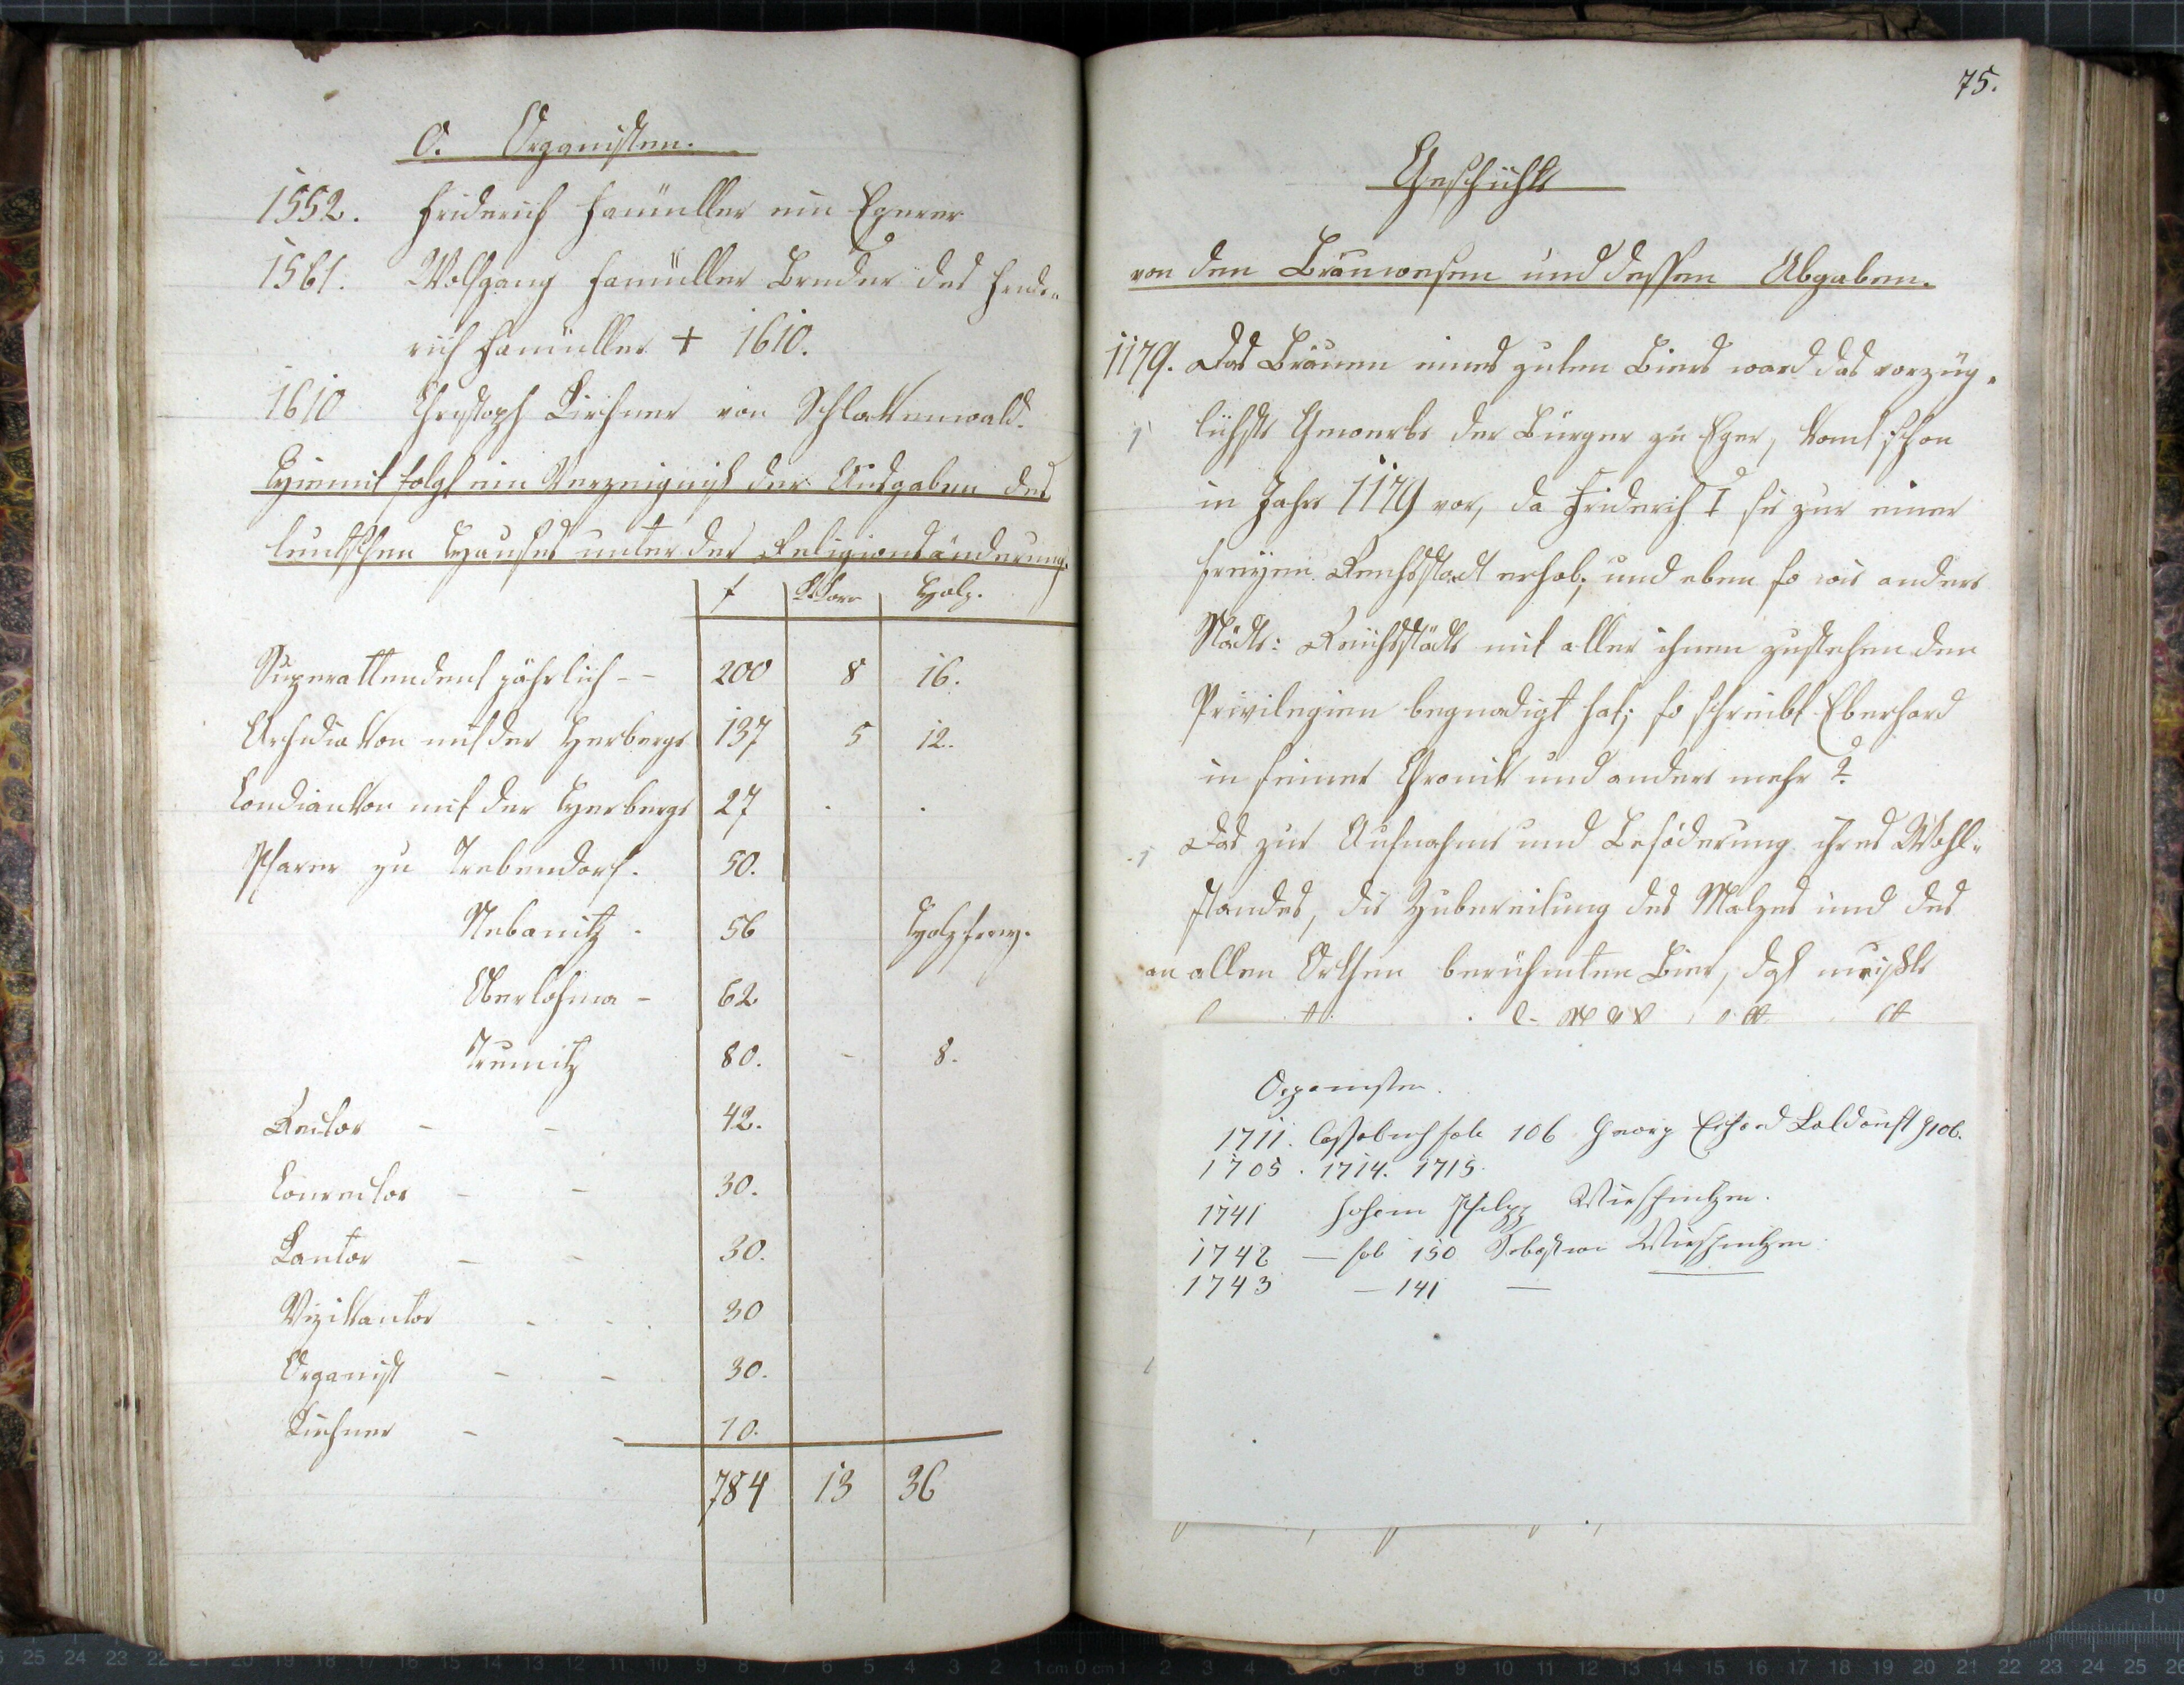 O. Organisten.
1552. Friderich Hamüller ein Egerer
1561. Wolfgang Hamüller Bruder des Fride-
rich Hamüller + 1610.
1610 Christoph Kirchner von Schlakenwald.
Hiemit folgt ein Verzeignis der Ausgaben des
teutschen Hauses unter der Religionsänderung.
f Korn Holz.
Superattendent jährlich - - 200 8 16.
Archidiakon mit der Herberge 137 5 12.
Condiankon mit der Herberge 27 . .
Pfarer zu Trebendorf. 50.
Nebanitz - 56 Holz frey.
Oberlohma - 62
Treunitz 80. - 8.
Rector - - 42.
Conrector - - 30.
Kantor - - 30.
Vizikantor - - . 30
Organist - - 30.
Kirchner - - 10.
784 13 36
75.
Geschichte
von den Bräuwesen und dessen Abgaben.
1179. Das Bräuen eines guten Biers ward das vorzüg-
lichste Gewerbe der Bürger zu Eger, komt schon
in Jahre 1179 vor, da Friderich I sie zur einer
freyen Reichsstadt erhob; und eben so wie andere
Städte: Reichsstädte mit aller ihnen zustehenden
Privilegien begnadigt hat; so schreibt Eberhard
in seiner Chronik und andere mehr
Das zur Aufnahme und Beföderung ihres Wohl-
standes, die Zubereitung des Malzes und des
an allen Orthen berühmten Bier,
Organisten.
1711. fol. 106 Georg
1705. 1714. 1715.
1741 Johann Philipp
1742 — fol 150 Sebastian
1743 — 141 —